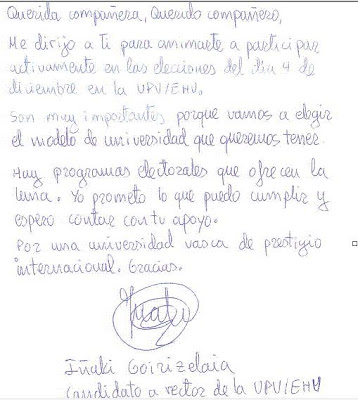 Querida compañera, Querido compañero,
Me dirijo a ti para animarte a participar
activamente en las elecciones del día 4 de
diciembre en la UPV/EHU.
Son muy importantes porque vamos a elegir
el modelo de universidad que queremos tener.
Hay programas electorales que ofrecen la
luna. Yo prometo lo que puedo cumplir y
espero contar con tu apoyo.
Por una universidad vasca de prestigio
internacional. Gracias.
Iñaki
Iñaki Goirizelaia
Candidato a rector de la UPV/EHU